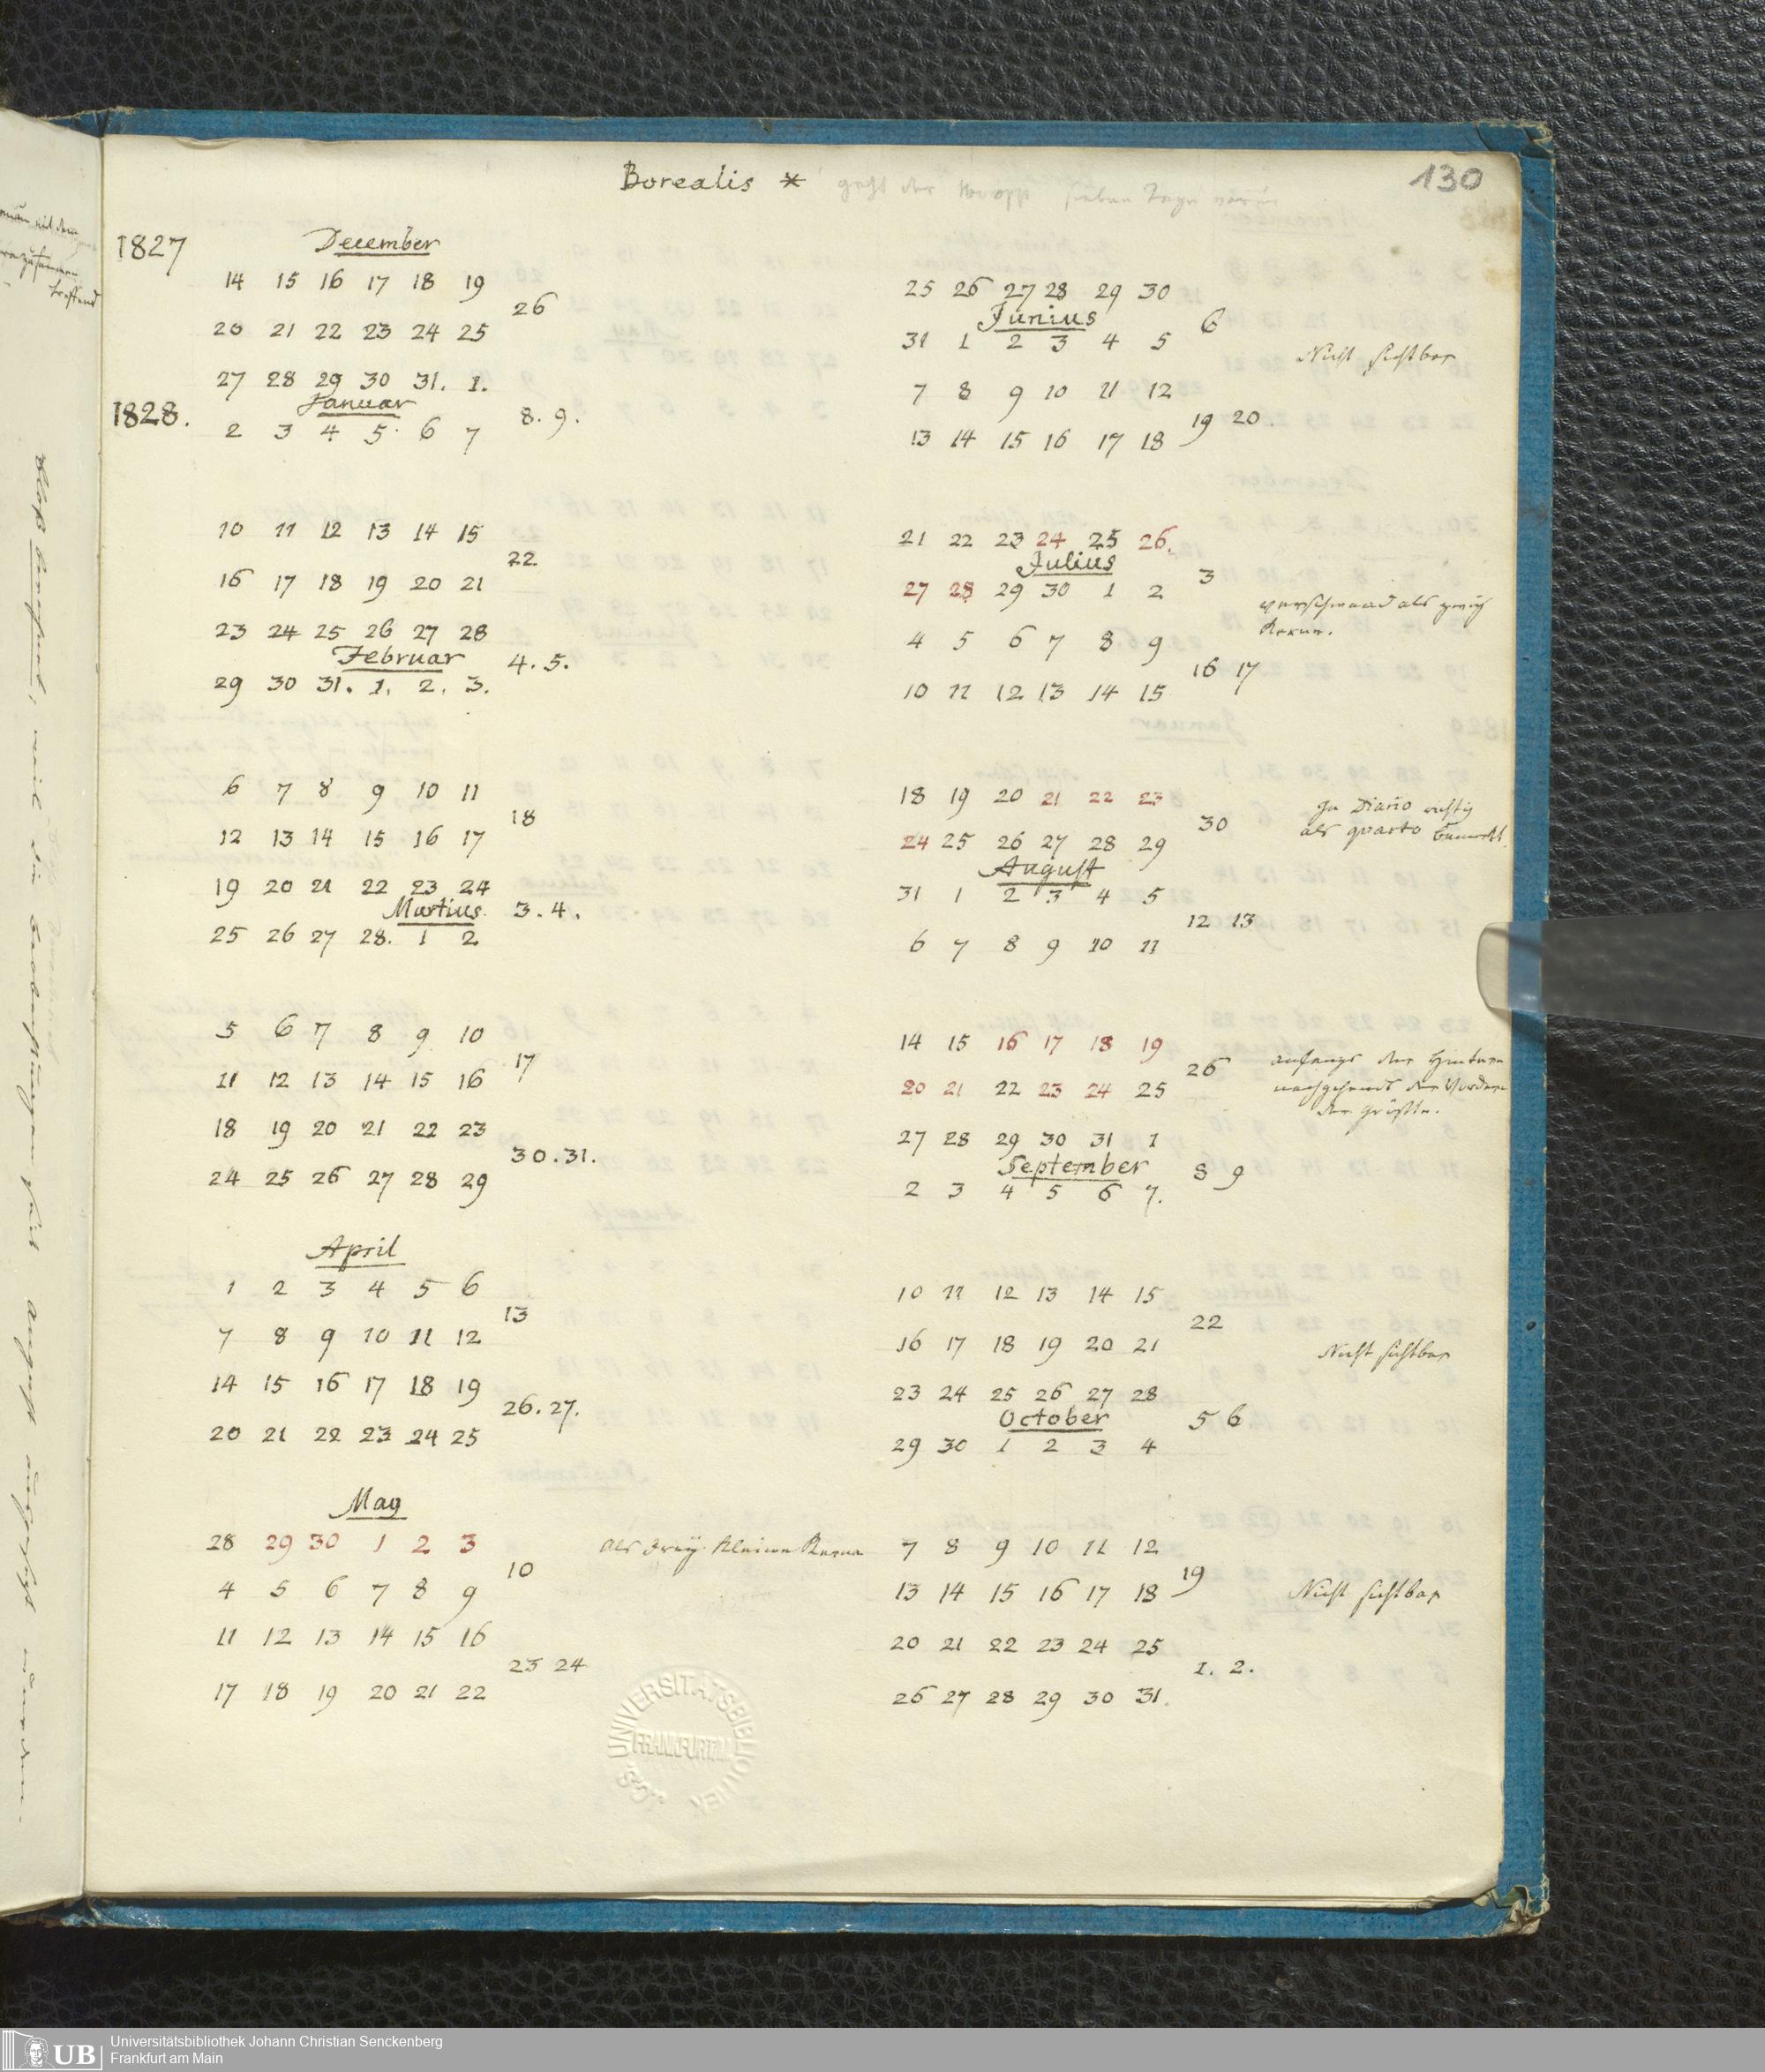 130
Borealis *
1827 December
14 15 16 17 18 19
26
20 21 22 23 24 25
27 28 29 30 31. 1.
1828. Januar
8. 9.
2 3 4 5 6 7
10 11 12 13 14 15
22
16 17 18 19 20 21
23 24 25 26 27 28
Februar
4. 5.
29 30 31. 1. 2. 3.
6 7 8 9 10 11
18
12 13 14 15 16 17
19 20 21 22 23 24
Martius
3. 4.
25 26 27 28. 1 2
5 6 7 8 9 10
17
11 12 13 14 15 16
18 19 20 21 22 23
30. 31.
24 25 26 27 28 29
April
1 2 3 4 5 6
13
7 8 9 10 11 12
14 15 16 17 18 19
26. 27.
20 21 22 23 24 25
May
28 29 30 1 2 3
als drey kleine Kerne
10
4 5 6 7 8 9
11 12 13 14 15 16
23 24
17 18 19 20 21 22
25 26 27 28 29 30
Junius
6
31 1 2 3 4 5
Nicht sichtbar
7 8 9 10 11 12
19 20.
13 14 15 16 17 18
21 22 23 24 25 26.
Julius
3
27 28 29 30 1 2
verschwand als zwey
Kerne.
4 5 6 7 8 9
16 17
10 11 12 13 14 15
18 19 20 21 22 23
30
In Diario richtig
als quarto bemerkt.
24 25 26 27 28 29
August
31 1 2 3 4 5
12 13
6 7 8 9 10 11
14 15 16 17 18 19
26
anfangs der Hintere
nachgehends der Vordere
der größte.
20 21 22 23 24 25
27 28 29 30 31 1
September
8 9
2 3 4 5 6 7.
10 11 12 13 14 15
22
16 17 18 19 20 21
Nicht sichtbar
23 24 25 26 27 28
October
5 6
29 30 1 2 3 4
7 8 9 10 11 12
19
13 14 15 16 17 18
Nicht sichtbar
20 21 22 23 24 25
1. 2.
26 27 28 29 30 31.
UNIVERSITÄTSBIBLIOTHEK
FRANKFURT/M.
UB
Universitätsbibliothek Johann Christian Senckenberg
Frankfurt am Main